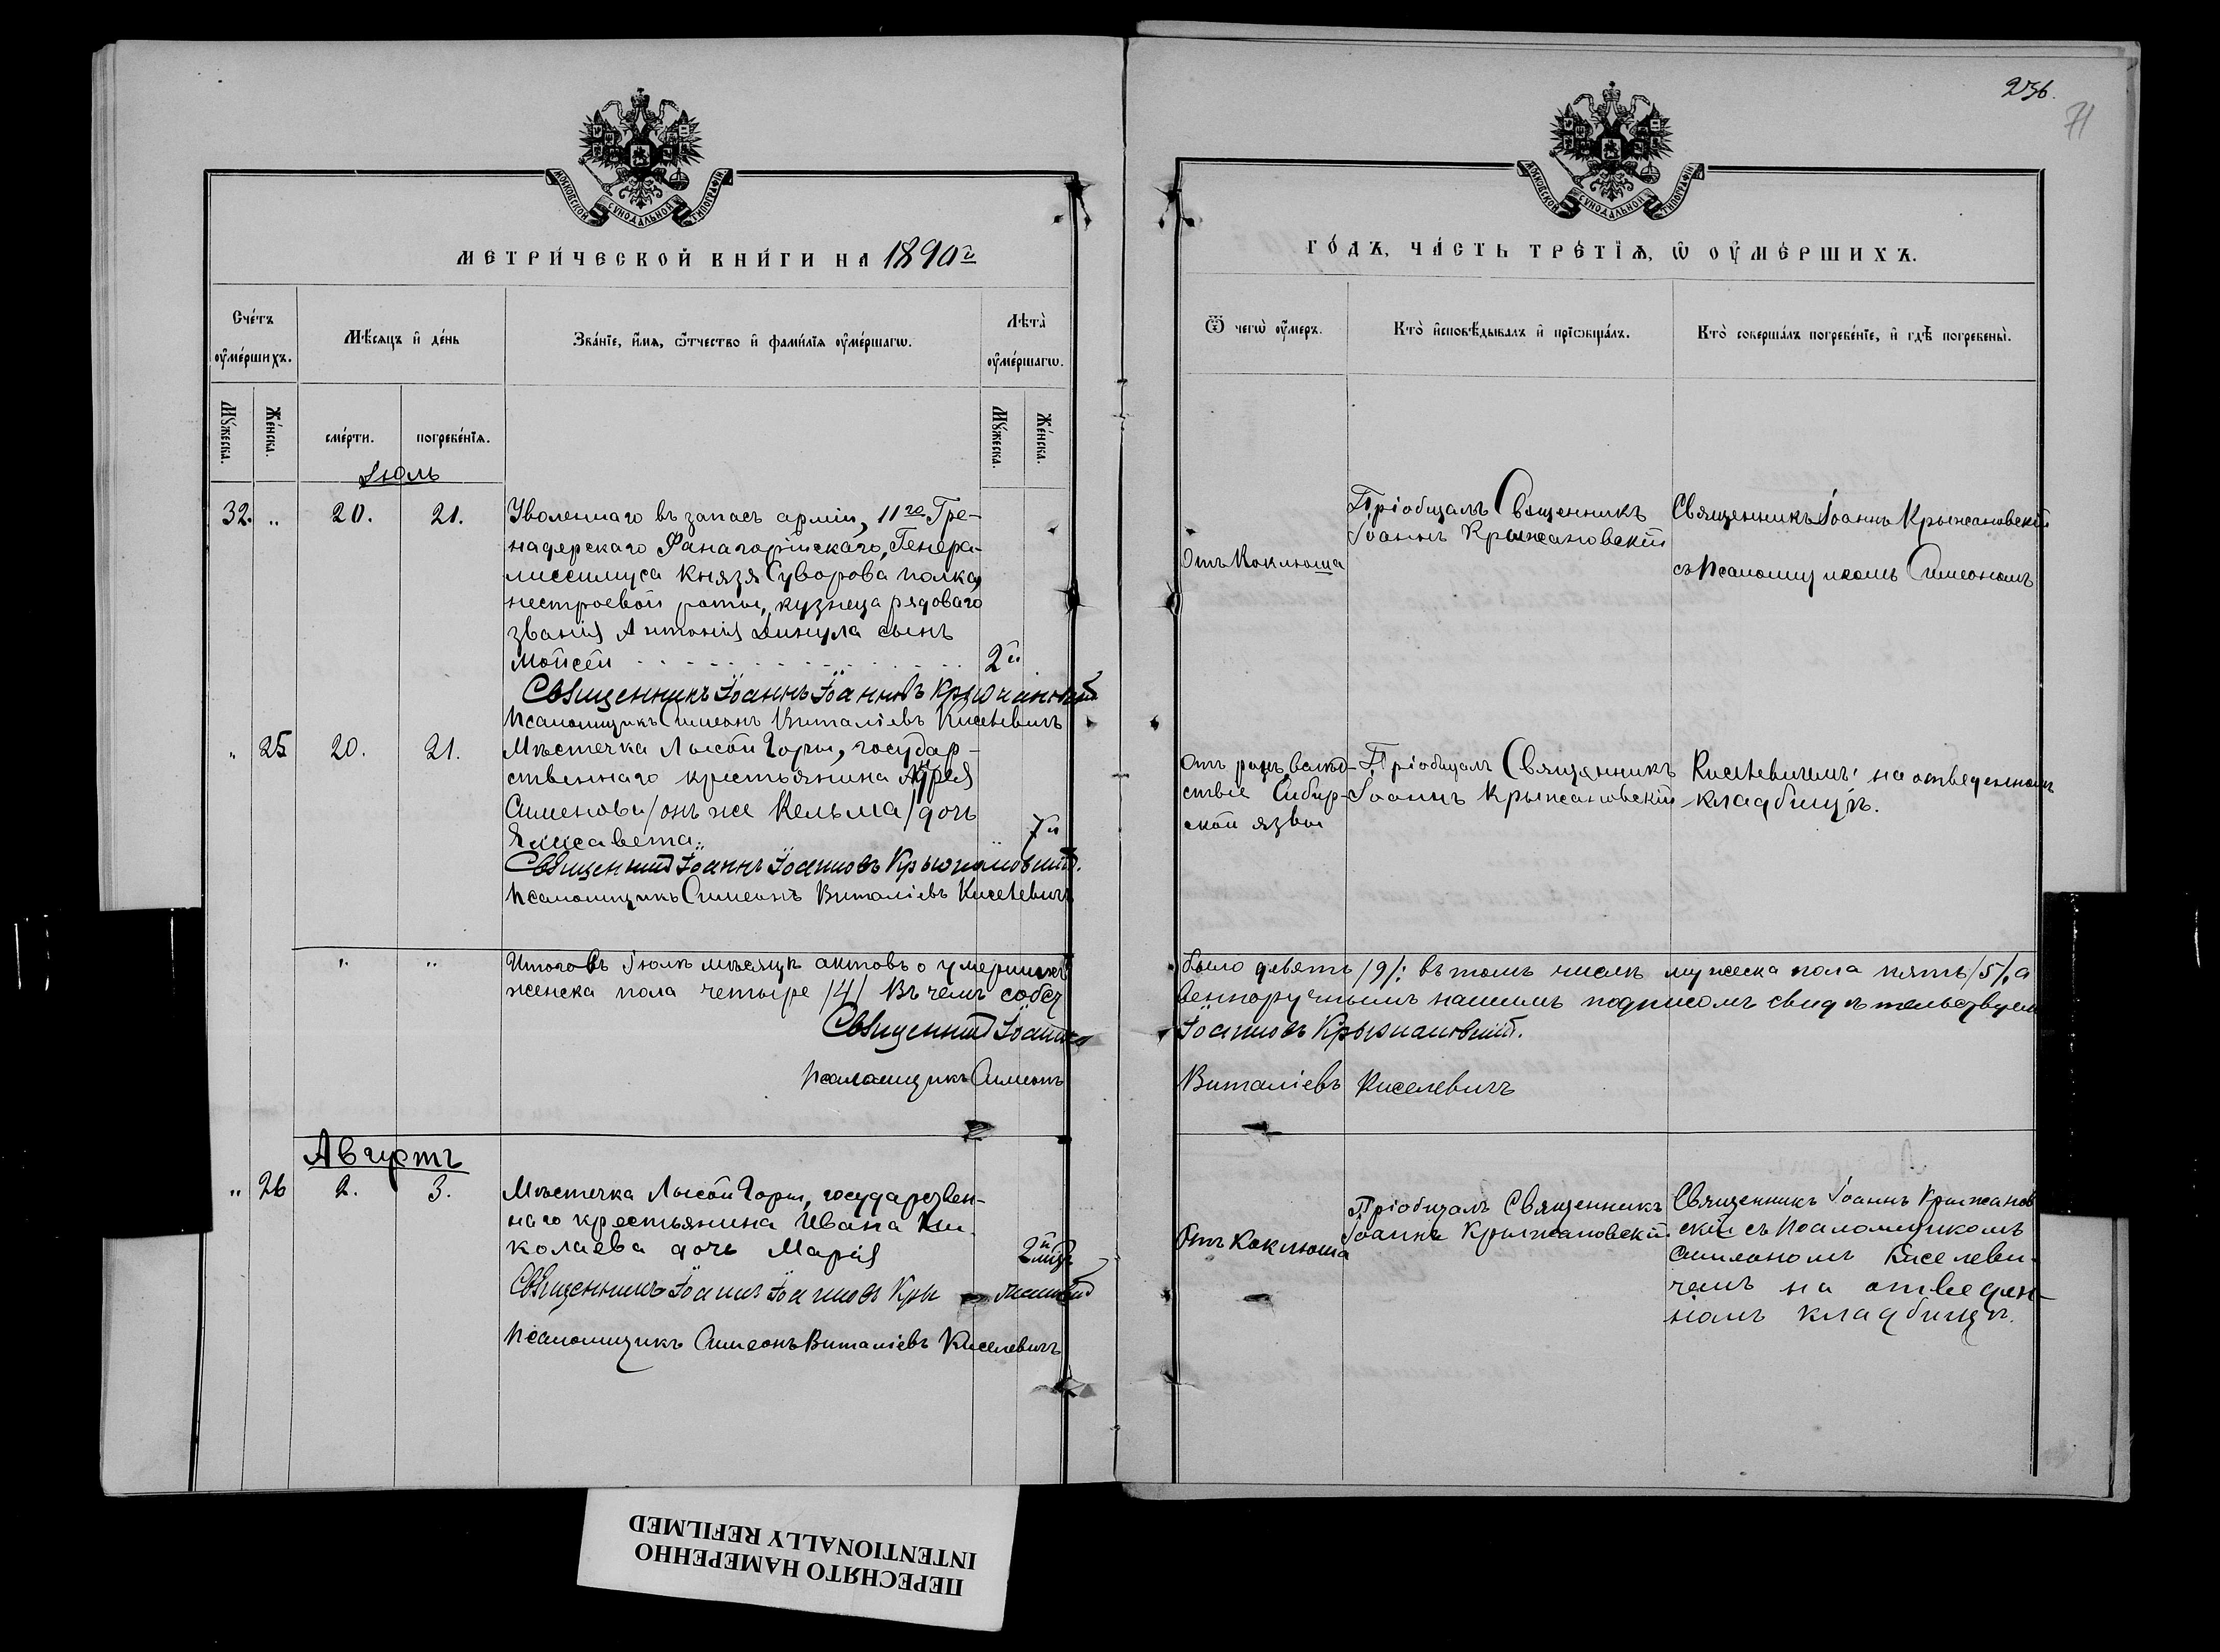 236.
71
МОСКОВСКОЙ СѴНОДАЛЬНОЙ ТИПОГРАФІИ
МЕТРИ́ЧЕСКОЙ КНИ́ГИ НА 1890й
Сче́тъ оумершихъ.
Мѣсяцъ и де́нь
Зва́ніе, и́мя, ѿтчество и фами́лія оуме́ршагѡ.
Лѣта̀ оуме́ршагѡ.
Мꙋжеска.
Же́нска.
сме́рти.
погребе́нія.
Мꙋжеска.
Же́нска.
Іюль
32.
"
20.
21.
Уволеннаго въ запасъ арміи, 11го Гре-
надерскаго Фанагорійскаго, Генера-
лиссимуса Князя Суворова полка,
нестроевой роты, кузнеца рядоваго
званія Антонія Динула сынъ
Мойсей
2й
Священникъ Іоаннъ Іоанновъ Крыжановскій
Псаломщикъ Симеонъ Виталіевъ Киселевичъ
"
25
20.
21.
Мѣстечка Лысой Горы, государ-
ственнаго крестьянина Андрея
Сименова /онъ же Кельма/ дочь
Елисавета
7й
Священникъ Іоаннъ Іоанновъ Крыжановскій.
Псаломщикъ Симеонъ Виталіевъ Киселевичъ
"
"
Итого въ Іюлѣ мѣсяцѣ актовъ о умершихъ
женска пола четыре /4/ Въ чемъ собст
Священникъ Іоаннъ
Псаломщикъ Симеонъ
Августъ
"
26
2.
3.
Мѣстечка Лысой Горы, государствен-
наго крестьянина Ивана Ни-
колаева дочь Марія
2й мѣс
Священникъ Іоаннъ Іоанновъ Крыжановскій
Псаломщикъ Симеонъ Виталіевъ Киселевичъ
МОСКОВСКОЙ СѴНОДАЛЬНОЙ ТИПОГРАФІИ
ГО́ДЪ, ЧА́СТЬ ТРЕ́ТІЯ, Ѡ ОУМЕ́РШИХЪ.
Ѿ чегѡ̀ оу́меръ.
Кто̀ исповѣ́дывалъ и пріѡбща́лъ.
Кто̀ соверша́лъ погребе́ніе, и гдѣ̀ погребены̀.
Отъ Коклюша
Пріобщалъ Священникъ
Іоаннъ Крыжановскій
Священникъ Іоаннъ Крыжановскій
съ Псаломщикомъ Симеономъ
Отъ ранъ вслѣд-
ствіе Сибир-
ской язвы
Пріобщалъ Священникъ
Іоаннъ Крыжановскій
Киселевичемъ на отведенномъ
кладбищѣ.
было девять /9/: въ томъ числѣ мужеска пола пять /5/, а
венноручнымъ нашимъ подписомъ свидѣтельствуемъ
Іоанновъ Крыжановскій.
Виталіевъ Киселевичъ
Отъ Коклюша
Пріобщалъ Священникъ
Іоаннъ Крыжановскій
Священникъ Іоаннъ Крыжанов
скій съ Псаломщикомъ
Симеономъ Киселеви-
чемъ на отведен-
номъ кладбищѣ.
ПЕРЕСНЯТО НАМЕРЕННО
INTENTIONALLY REFILMED